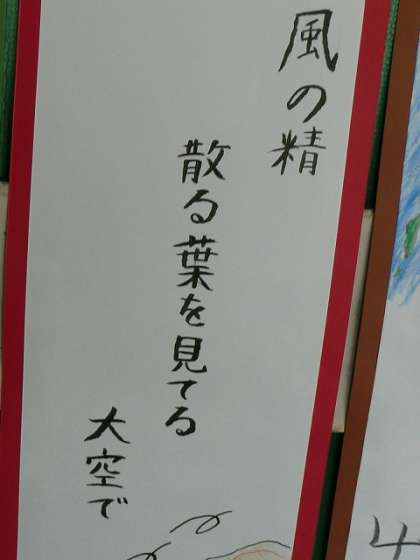 風の精
散る葉を見てる
大空で